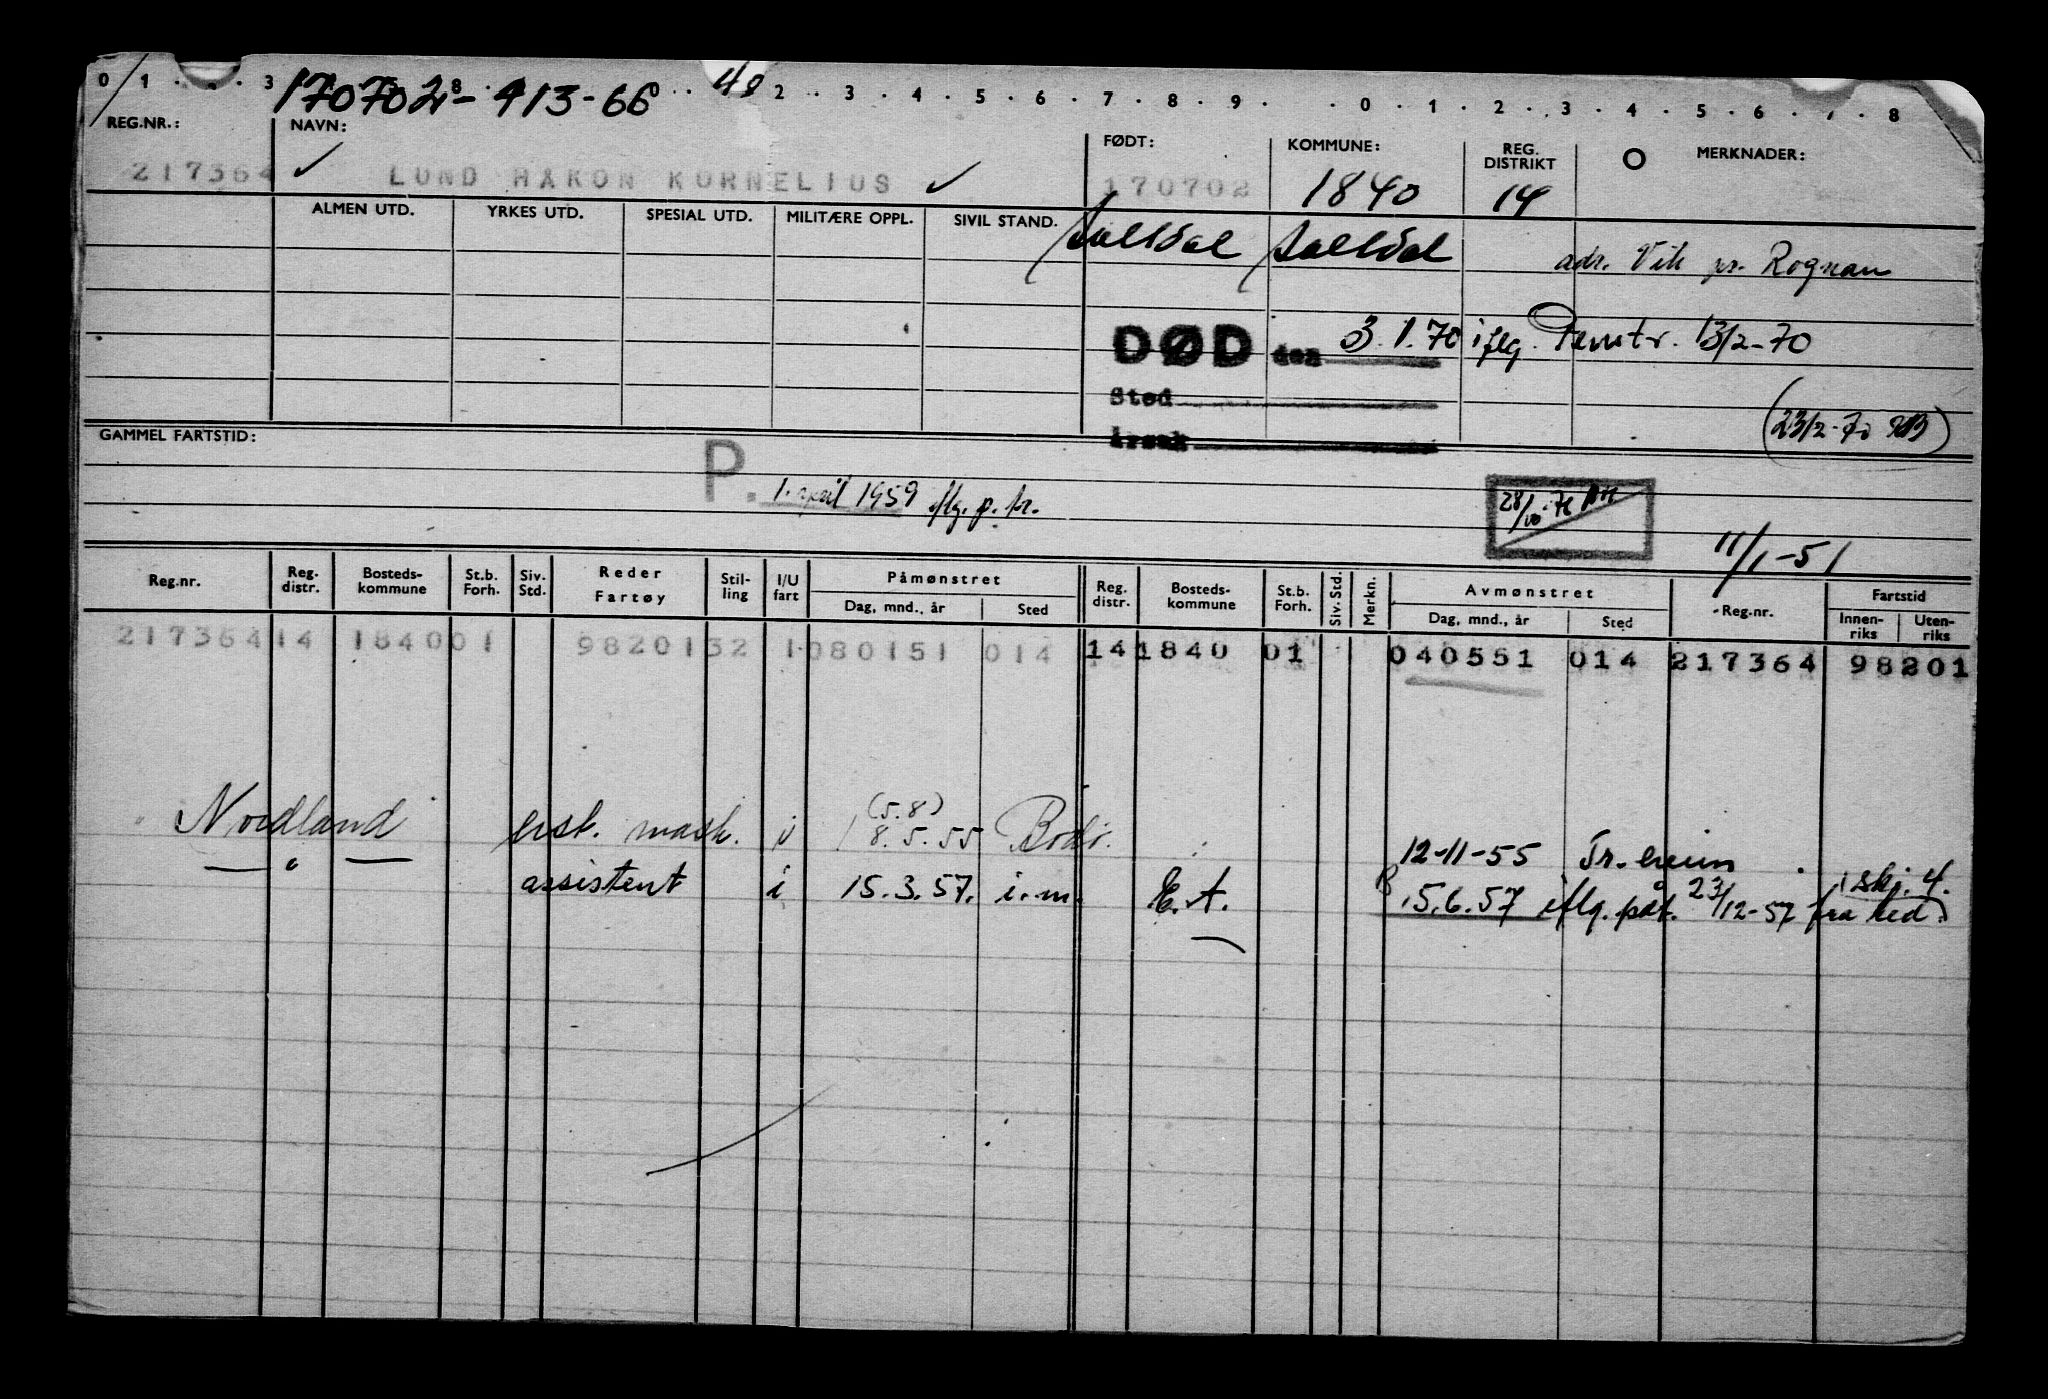 0 1 . . . 3 8 . . . 2 . . 3 . . 4 . . 5 . . 6 . . 7 . . 8 . . 9 . . 0 . . 1 . . 2 . . 3 . . 4 . . 5 . . 6 . . 7 . . 8
170702 - 413-66 48
REG.NR.: NAVN: FØDT: KOMMUNE: REG. DISTRIKT MERKNADER:
217364 LUND HAKON KORNELIUS 170702 1840 14
ALMEN UTD. YRKES UTD. SPESIAL UTD. MILITÆRE OPPL. SIVIL STAND.
Saltdal Saltdal adr. Vik pr. Rognan
DØD den 3.1.70 iflg. Penstr. 13/2-70
Sted
Årsak (23/2-70)
GAMMEL FARTSTID:
P. 1. april 1959 iflg. p. tr.
28/10-71
11/1-51
Reg.nr. Reg. distr. Bosteds-kommune St.b. Forh. Siv. Std. Reder Fartøy Stil-ling I/U fart Påmønstret Dag, mnd., år Sted Reg. distr. Bosteds-kommune St.b. Forh. Siv. Std. Merkn. Avmønstret Dag, mnd., år Sted Reg.nr. Fartstid Innen-riks Uten-riks
217364 14 1840 01 98201 32 1 080151 014 14 1840 01 040551 014 217364 98201
Nordland erst. mask. i (5.8) 8.5.55 Bodø. 12-11-55 Tr.heim
— " — assistent i 15.3.57. i.m. E.A. 15.6.57 iflg. påt. 23/12-57 fra red. skj. 4.